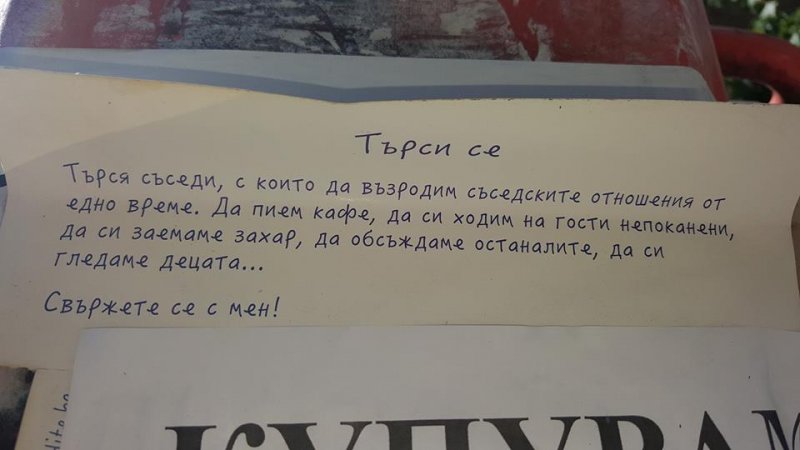 Търси се
Търся съседи, с които да възродим съседските отношения от
едно време. Да пием кафе, да си ходим на гости непоканени,
да си заемаме захар, да обсъждаме останалите, да си
гледаме децата...
Свържете се с мен!
КУПУВАМ